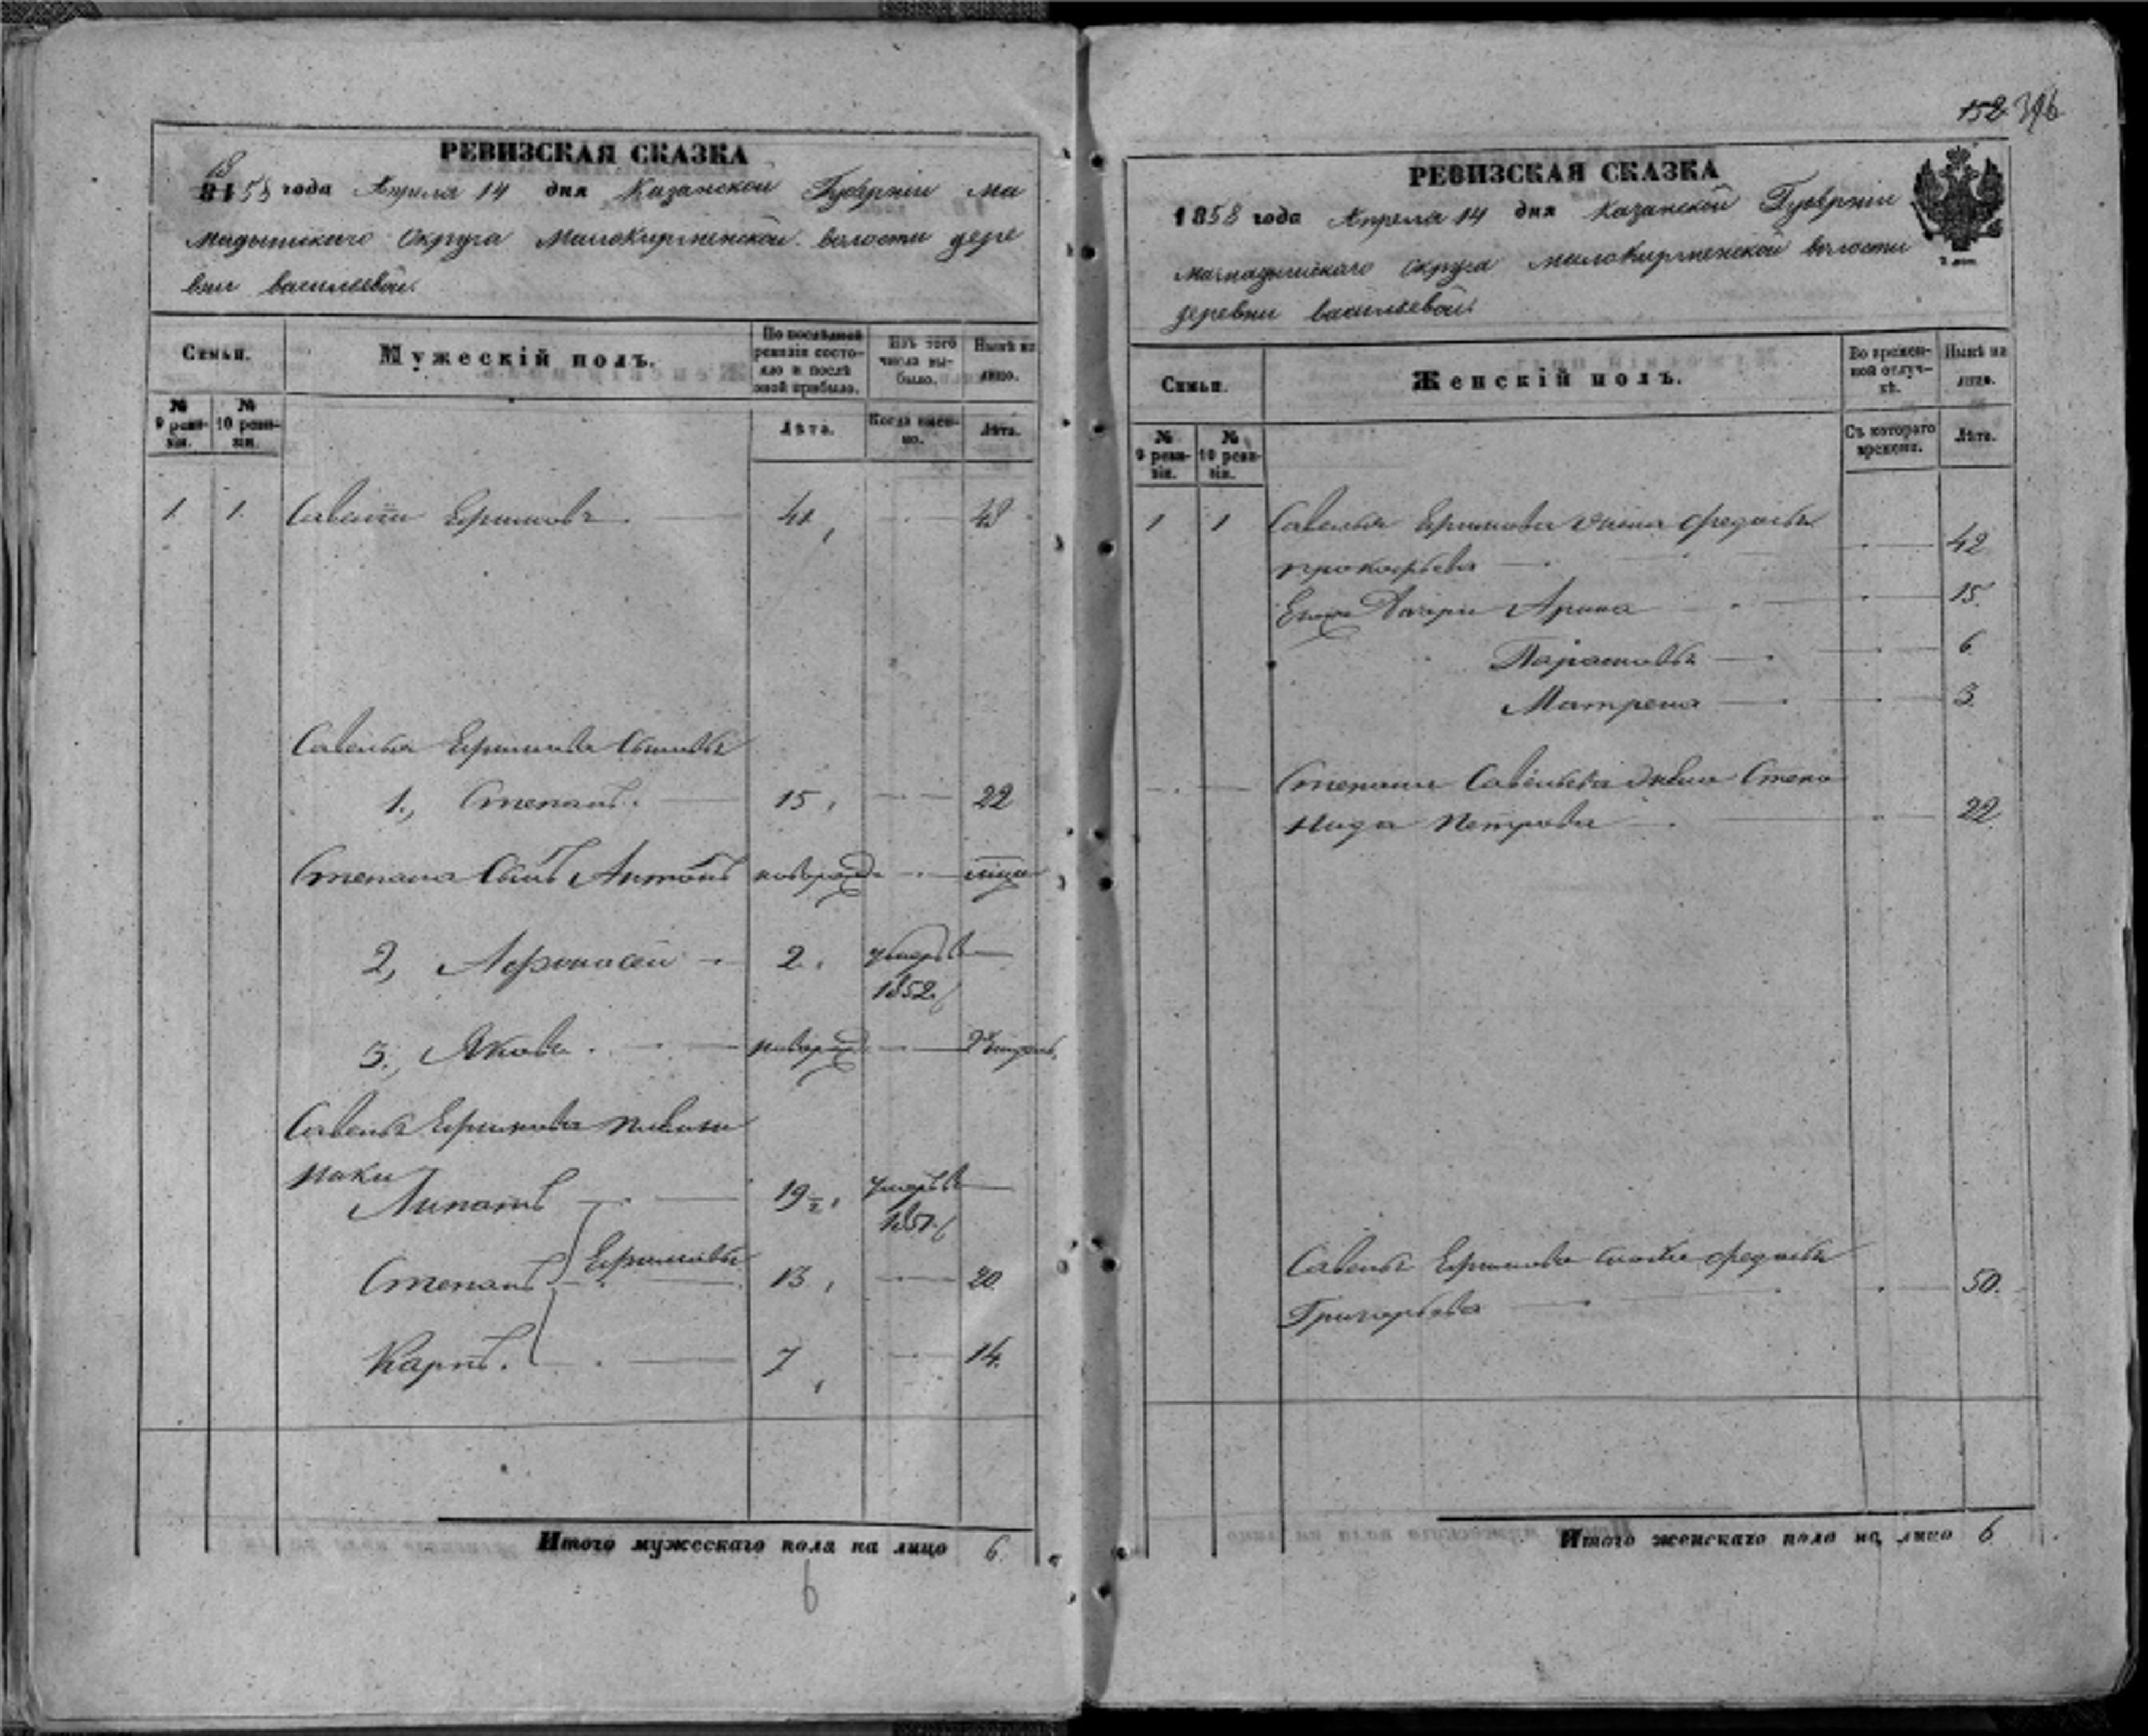 РЕВИЗСКАЯ СКАЗКА
1858 года Апреля 14 дня Казанской Губерніи Ма
мадышскаго Округа Малокирменской волости дере
вни васильевой.
Семьи.
Мужескій полъ.
По послѣдней ревизіи состояло и послѣ оной прибыло.
Изъ того числа выбыло.
Нынѣ на лицо.
№ 9 ревизіи.
№ 10 ревизіи.
Лѣта.
Когда именно.
Лѣта.
1 1 Савелій Ефимовъ. 41 48
Савелья Ефимова Сыновья
1., Степанъ. 15 22
Степана Сынъ Антонъ новорожд
2, Афонасей 2. умеръ в
1852
3., Яковъ. новорожд
Савелья Ефимова племян
ники
Липатъ 19½ умеръ в
1857
Степанъ Ефимовы 13 20
Карпъ. 7 14.
Итого мужескаго пола на лицо 6.
6
152 396
РЕВИЗСКАЯ СКАЗКА
1858 года Апреля 14 дня Казанской Губерніи
мамадышскаго Округа малокирменской волости
деревни васильевой.
Семьи.
Женскій полъ.
Во временной отлучкѣ.
Нынѣ на лицо.
№ 9 ревизіи.
№ 10 ревизіи.
Съ котораго времени.
Лѣта.
1 1 Савелья Ефимова жена Федосья
прокофьева 42
Ево Дочери Арина 15.
Парасковья 6.
Матрена 3.
Степана Савельева жена Степа
нида Петрова 22.
Савелья Ефимова Федосья
Григорьева 50.
Итого женскаго пола на лицо 6